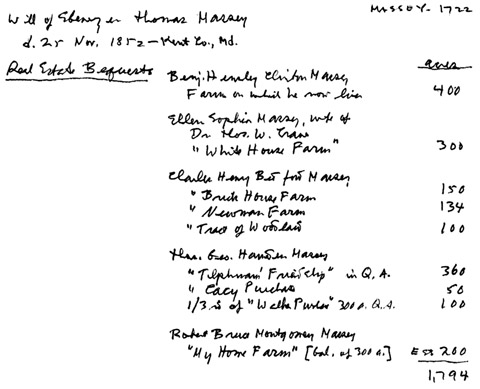 MASSEY - 1722
Will of Ebenezer Thomas Massey
d. 25 Nov. 1852 - Kent Co., Md.
Real Estate Bequests acres
Benj. Hensley Clinton Massey
Farm on which he now lives 400
Ellen Sophia Massey, wife of
Dr Thos. W. Crane
"White House Farm" 300
Charles Henry Massey
"Brick House Farm 150
"Newman Farm 134
"Tract of Woodland 100
Thos. Geo. Massey
"Tilghman's Friendship" in Q.A. 360
"Cacy Purchase 50
1/3 of 300 a. Q.A. 100
Robert Bruce Montgomery Massey
"My Home Farm" [bal. of 300 a.] Est 200
1,794